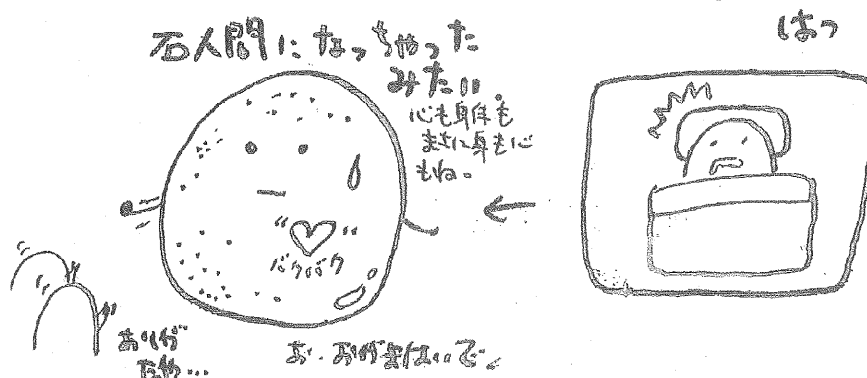 はっ
石人間になっちゃった
みたい。
心も身体も
まさに身も心
もね。
バクバク
ありが
たや…
お、おがまないで